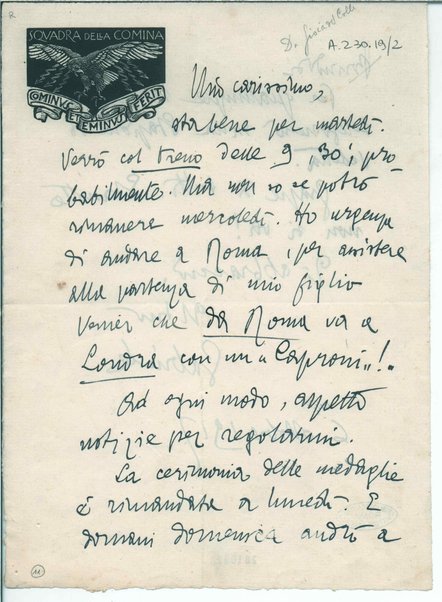 SQVADRA DELLA COMINA
COMINVS ET EMINVS FERIT
A.230.19/2
Mio carissimo,
sta bene per martedì.
Verrò col treno delle 9 30', pro
babilmente. Ma non so se potrò
rimanere mercoledì. Ho urgenza
di andare a Roma, per assistere
alla partenza di mio figlio
Venier che da Roma va a
Londra con un "Caproni„!
Ad ogni modo, aspetto
notizie per regolarmi.
La cerimonia delle medaglie
è rimandata a lunedì. E
domani domenica andrò a
11